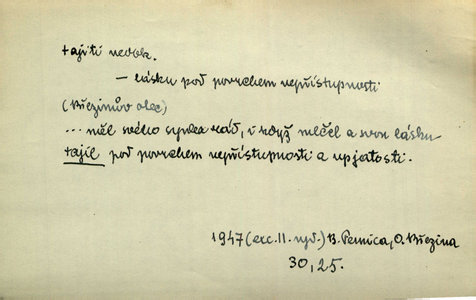 tajiti nedok.
– lásku pod povrchem nepřístupnosti
(Březinův otec)
... měl svého syna rád, i když mlčel a svou lásku
tajil pod povrchem nepřístupnosti a upjatosti.
1947 (exc. II. vyd.) B. Pernica, O. Březina
30, 25.